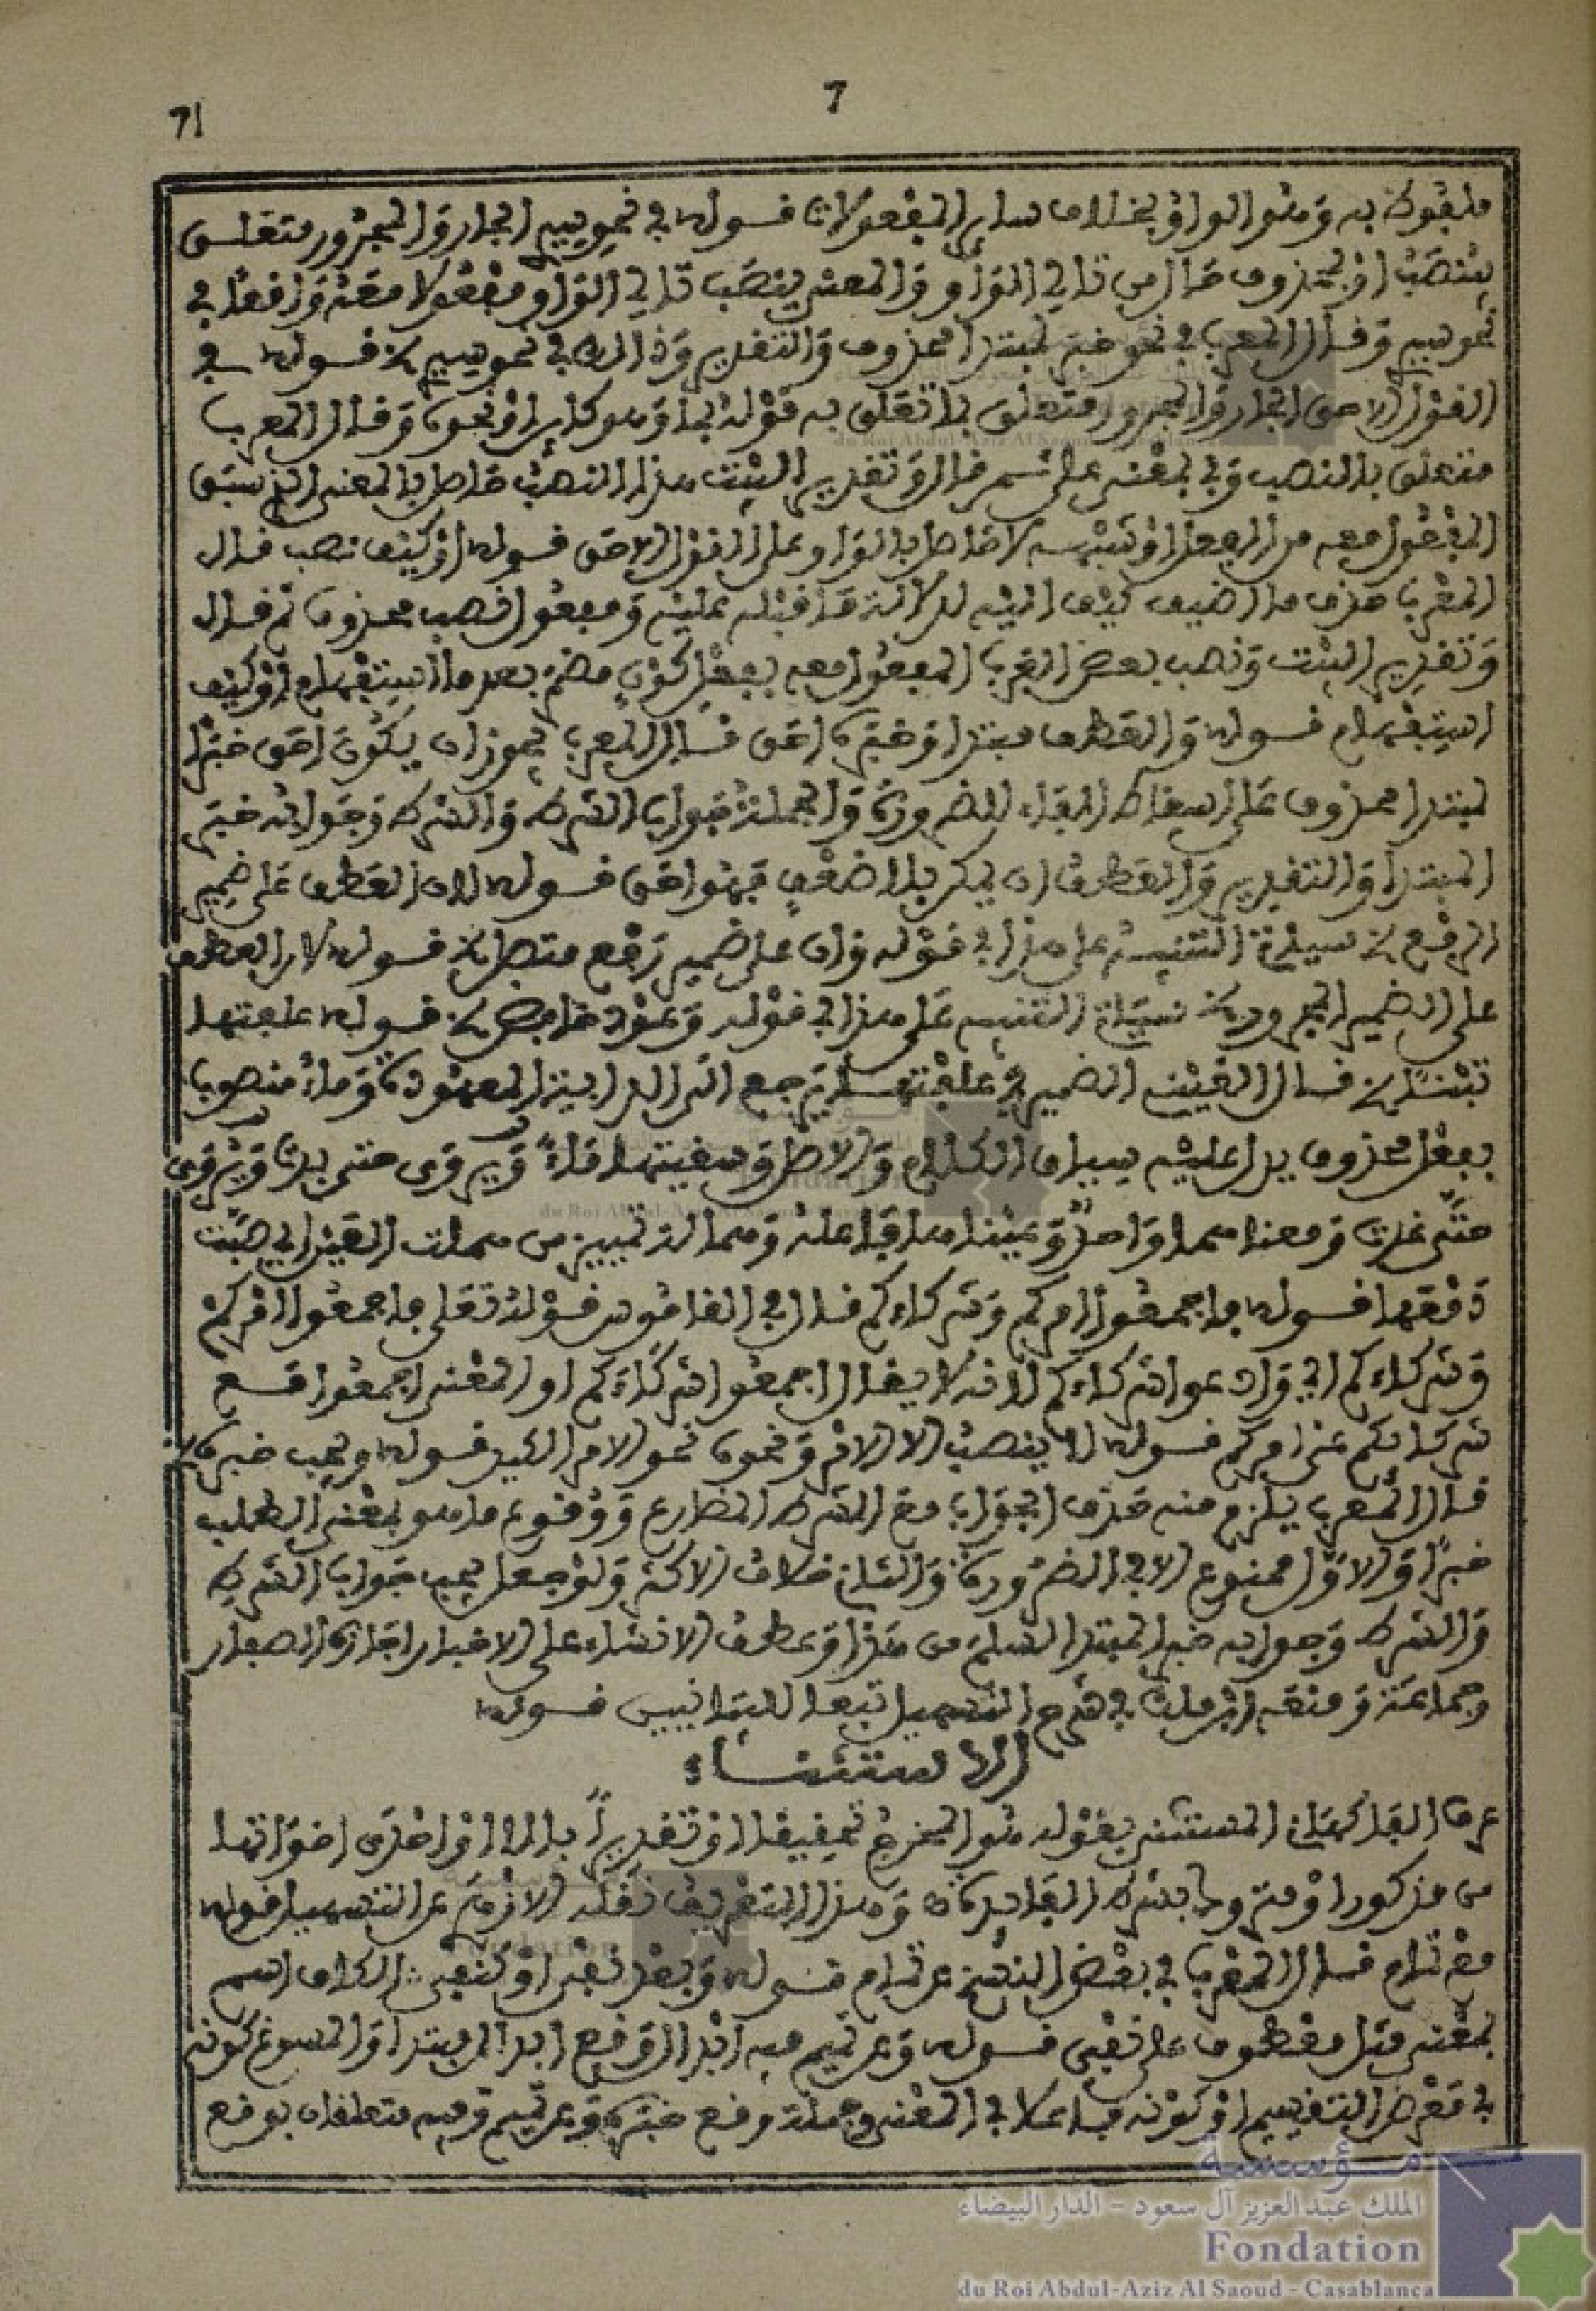 7
71
ملفوظ به وهو الواو بخلاف ساير المفعولات قوله في نحو سير الجار والمجرور متعلق
بينصب او بمحذوف حال من تالي الواو والمعنى ينصب تالي الواو مفعولا معه واقعا في
نحو سير وقال المعرب في نحو خبر لمبتدا محذوف والتقدير وذالك في نحو سير ه قوله في
القول الاحق الجار والمجرور متعلق بما تعلق به قوله بما وهو كاين او نحوه وقال المعرب
متعلق بالنصب وفي بمعنى على ثم قال وتقدير البيت هذا النصب حاصل بالمعنى الذي سبق
المفعول معه من الفعل او شبهه لا حاصل بالواو على القول الاحق قوله او كيف نصب قال
المعرب حذف ما اضيف كيف اليه لدلالة ما قبله عليه ومفعول نصب محذوف ثم قال
وتقدير البيت ونصب بعض العرب المفعول معه بفعل كون مضمر بعد ما استفهام او كيف
استفهام قوله والعطف مبتدا وخبره احق قال المعرب يجوز ان يكون احق خبرا
لمبتدا محذوف على اسقاط الفاء للضرورة والجملة جواب الشرط والشرط وجوابه خبر
المبتدا والتقدير والعطف ان يمكن بلا ضعف فهو احق قوله لان العطف على ضمير
الرفع ه سياتي التنبيه على هذا في قوله وان على ضمير رفع متصل ه قوله لان العطف
على الضمير المجرور ه سياتي التنبيه على هذا في قوله وعود خافض ه قوله علفتها
تبنا ه قال العيني الضمير في علفتها يرجع الى الدابة المعهودة وماء منصوب
بفعل محذوف يدل عليه سياق الكلام والاصل وسقيتها ماء ويروى حتى بدت ويروى
حتى غدت ومعناهما واحد وعيناها فاعله وهمالة تمييز من هملت العين اي صبت
دمعها قوله فاجمعوا امركم وشركاءكم قال في القاموس قوله تعلى فاجمعوا امركم
وشركاءكم اي وادعوا شركاءكم لانه لا يقال اجمعوا شركاءكم او المعنى اجمعوا مع
شركائكم على امركم قوله لا ينصب الا الامر ونحوه نحو الامر الكيد قوله ويجب خبره ه
قال المعرب يلزم منه حذف الجواب مع الشرط المضارع ووقوع ما هو بمعنى الطلب
خبرا والاول ممنوع الا في الضرورة والثاني خلاف الاكثر ولو جعل يجب جواب الشرط
والشرط وجوابه خبر المبتدا لسلم من هذا وعطف الانشاء على الاخبار اجازه الصفار
وجماعة ومنعه ابن مالك في شرح التسهيل تبعا للبيانيين قوله
الاستثناء
عرف الفاكهاني المستثنى بقوله هو المخرج تحقيقا او تقديرا بالا او احدى اخواتها
من مذكور او متروك بشرط الفايدة وهذا التعريف نقله الازهري عن التسهيل قوله
مع تمام قال المعرب في بعض النسخ عن تمام قوله وبعد نفي او كنفي الكاف اسم
بمعنى مثل معطوف على نفي قوله وعن تميم فيه ابدال وقع ابدال مبتدا والمسوغ كونه
في معرض التقسيم او كونه فاعلا في المعنى وجملة وقع خبره وعن تميم وفيه متعلقان بوقع
مؤسسة
الملك عبد العزيز آل سعود - الدار البيضاء
Fondation
du Roi Abdul-Aziz Al Saoud - Casablanca